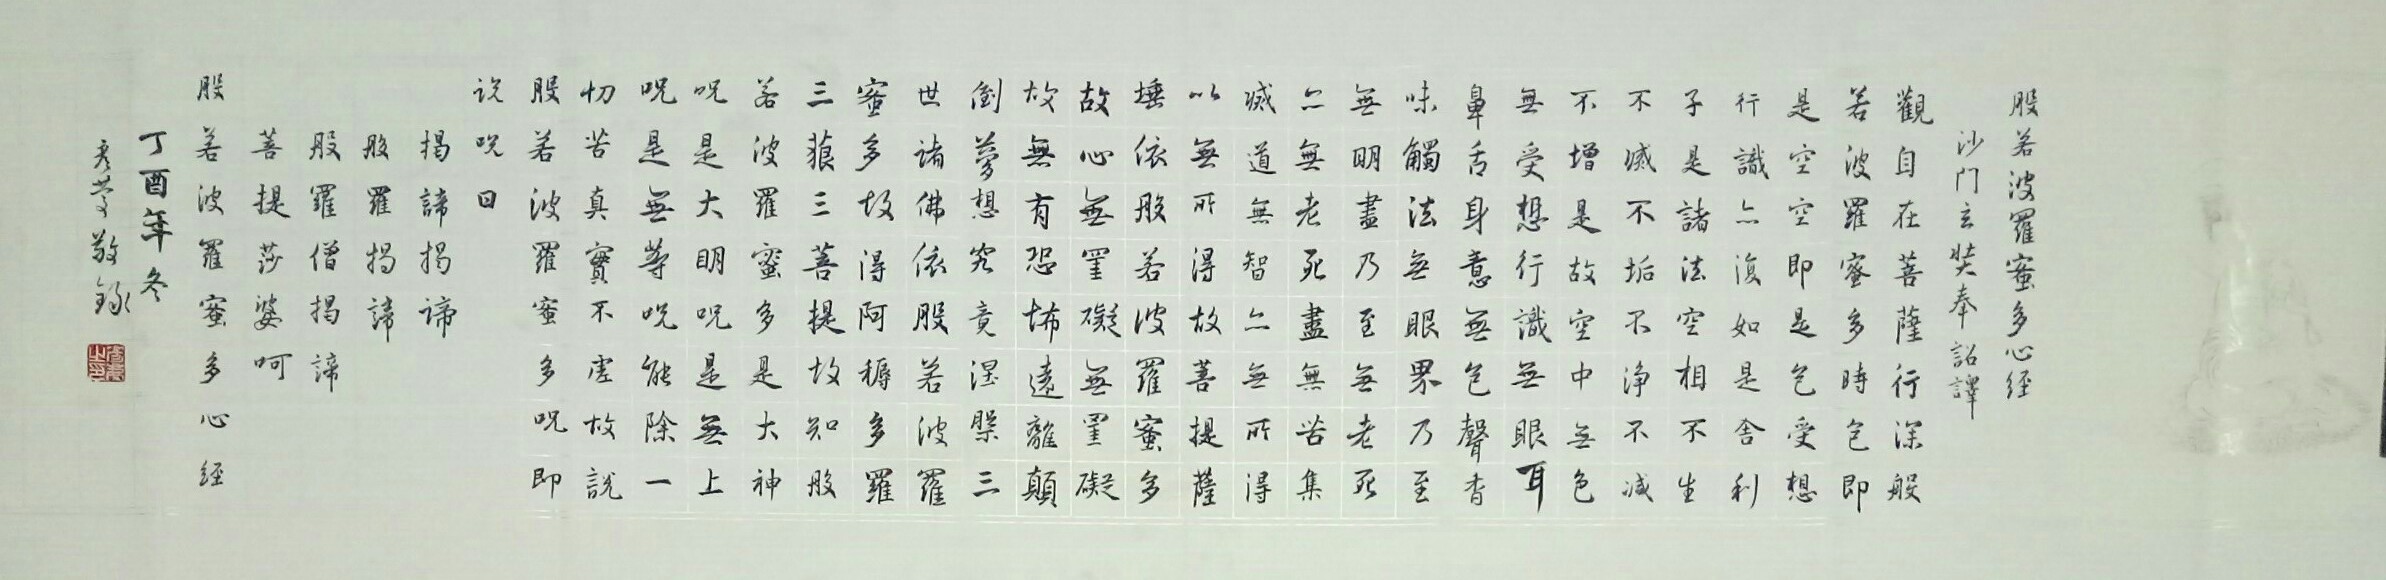 般若波羅蜜多心経
沙門玄奘奉詔譯
觀自在菩薩行深般
若波羅蜜多時色即
是空空即是色受想
行識亦復如是舍利
子是諸法空相不生
不滅不垢不浄不减
不增是故空中無色
無受想行識無眼耳
鼻舌身意無色聲香
味觸法無眼界乃至
無明盡乃至無老死
亦無老死盡無苦集
滅道無智亦無所得
以無所得故菩提薩
埵依般若波羅蜜多
故心無罣礙無罣礙
故無有恐怖遠離顛
倒夢想究竟涅槃三
世諸佛依般若波羅
蜜多故得阿耨多羅
三藐三菩提故知般
若波羅蜜多是大神
呪是大明呪是無上
呪是無等呪能除一
切苦真實不虛故說
般若波羅蜜多呪即
説呪曰
揭諦揭諦
般羅揭諦
般羅僧揭諦
菩提莎婆呵
般若波羅蜜多心経
丁酉年冬
敬錄